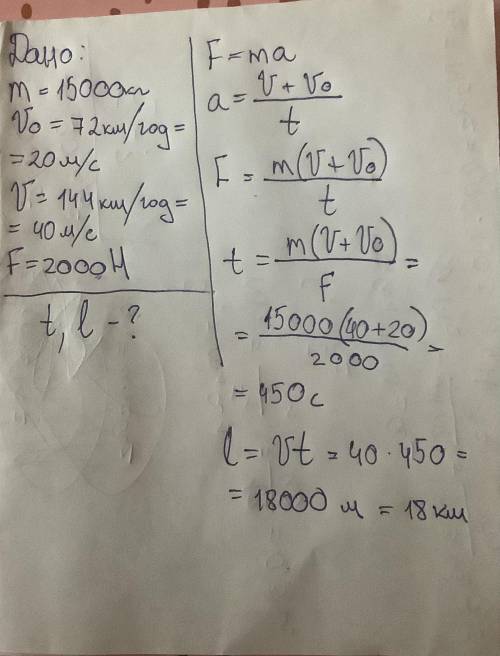 Дано:
m = 15000кг
V₀ = 72км/год =
= 20м/с
V = 144км/год =
= 40м/с
F = 2000Н
t, l - ?
F = ma
a = (V + V₀) / t
F = m(V + V₀) / t
t = m(V + V₀) / F =
= 15000(40+20) / 2000 =
= 450с
l = Vt = 40 · 450 =
= 18000 м = 18км